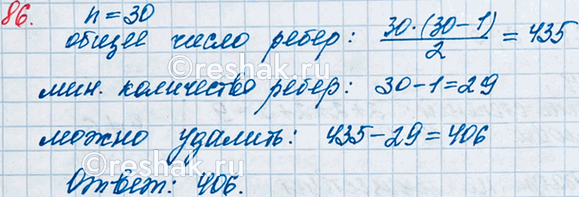 86. n = 30
общее число ребер: 30·(30-1)/2 = 435
мин. количество ребер: 30-1=29
можно удалить: 435-29=406
Ответ: 406.
reshak.ru
reshak.ru